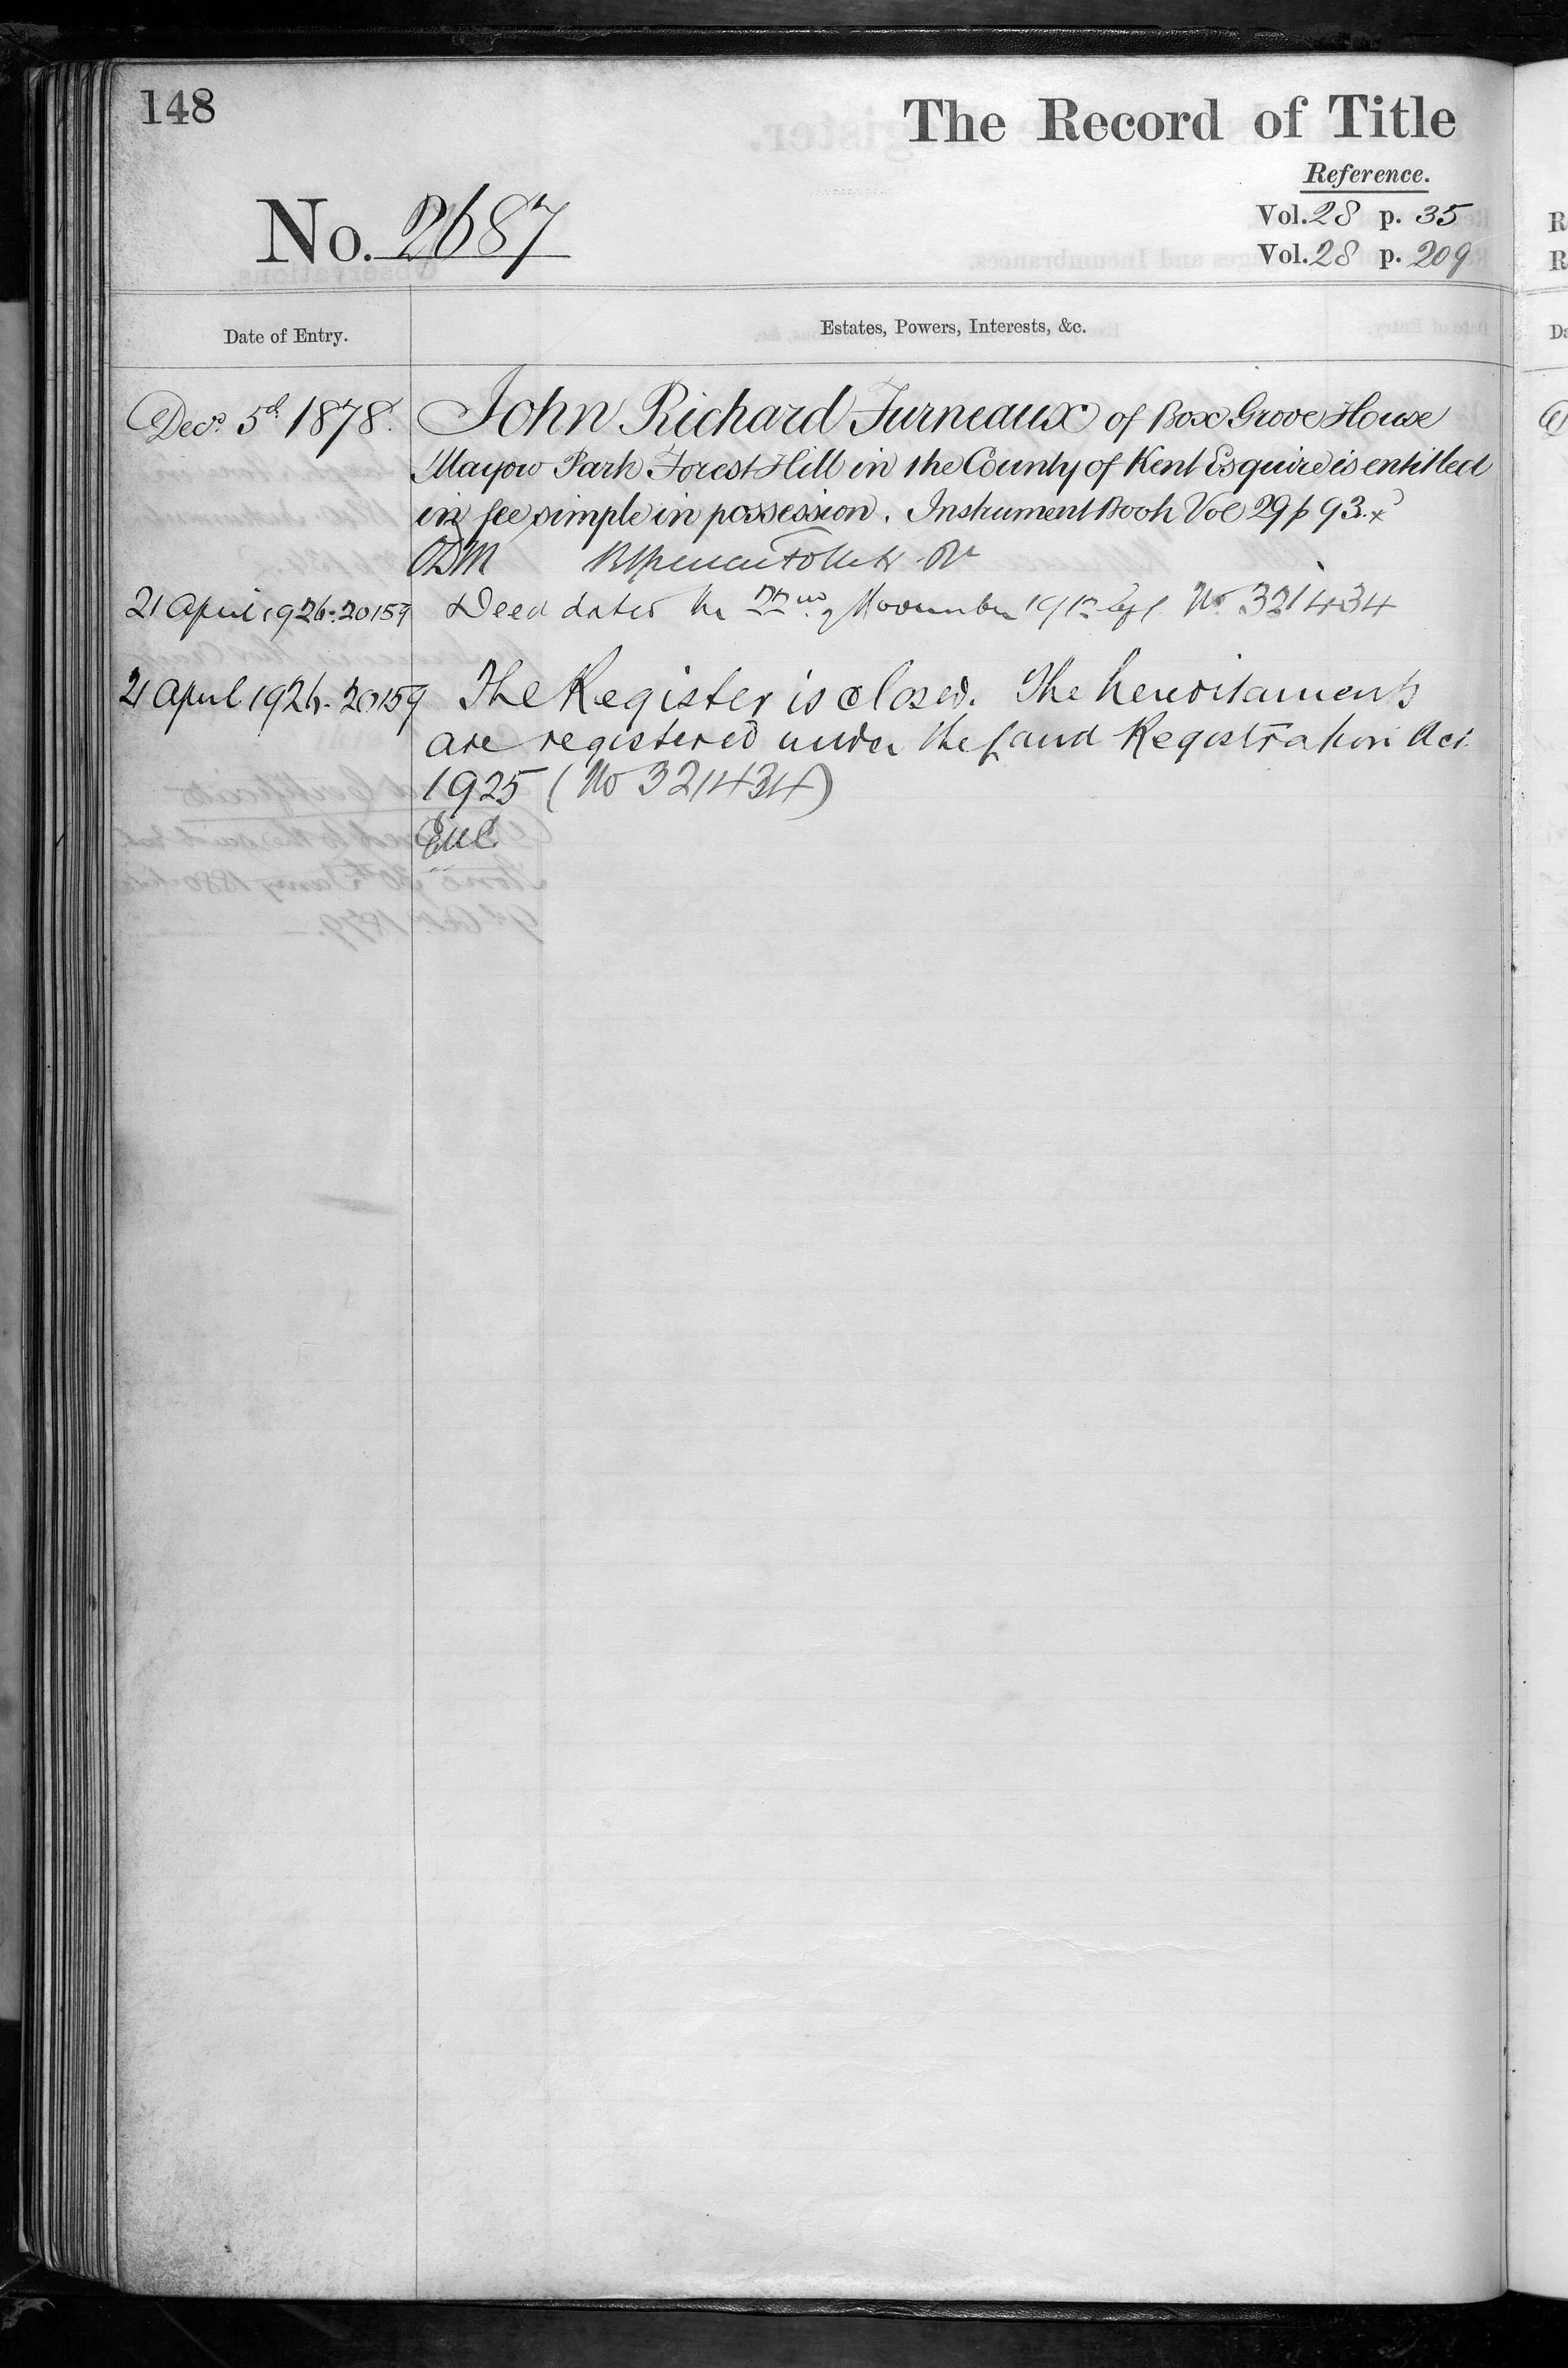 148
The Record of Title
Reference.
No. 2687
Vol. 28 p. 35
Vol. 28 p. 209
Date of Entry.
Estates, Powers, Interests, &c.
Decr. 5th 1878. John Richard Furneaux of Box Grove House
Mayow Park Forest Hill in the County of Kent Esquire is entitled
in fee simple in possession. Instrument Book Vol 29 p 93. x
21 April 1926. 20159 Deed dated the 22nd November No. 321434
21 April 1926. 20159 The Register is closed. The hereditaments
are registered under the Land Registration Act
1925 (No 321434)